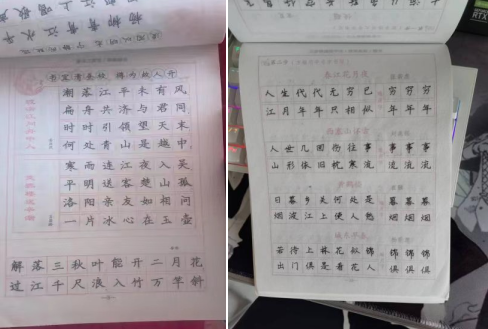 杨柳青青江水平
潮落江平未有风
扁舟共济与君同
时时引领望天末
何处青山是越中
寒雨连江夜入吴
平明送客楚山孤
洛阳亲友如相问
一片冰心在玉壶
解落三秋叶能开二月花
过江千尺浪入竹万竿斜
春江花月夜
人生代代无穷已 穷穷穷
江月年年只相似 年年年
西塞山怀古
人世几回伤往事 事事事
山形依旧枕寒流 流流流
黄鹤楼
日暮乡关何处是 暮暮暮
烟波江上使人愁 烟烟烟
若待上林花似锦 锦锦锦
出门俱是看花人 俱俱俱
RTX